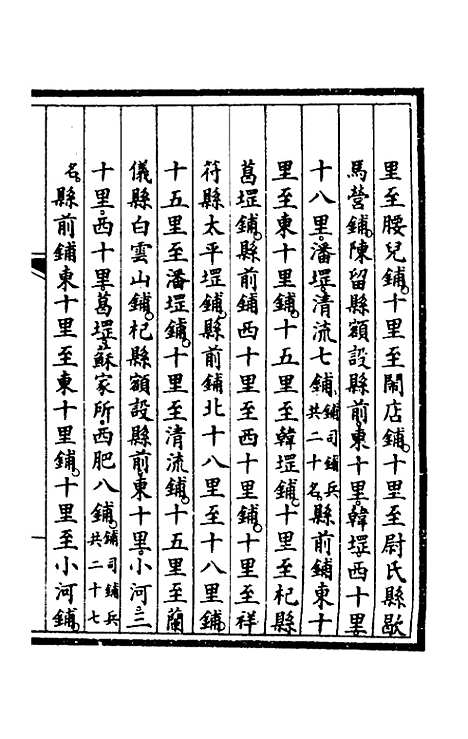 里至腰兒鋪。十里至鬧店鋪。十里至尉氏縣歇
馬營鋪。陳留縣額設縣前。東十里。韓堽。西十里。
十八里潘堽。清流七鋪。鋪司鋪兵共二十名。縣前鋪東十
里至東十里鋪。十五里至韓堽鋪。十里至杞縣
葛堽鋪。縣前鋪西十里至西十里鋪。十里至祥
符縣太平堽鋪。縣前鋪北十八里至十八里鋪。
十五里至潘堽鋪。十里至清流鋪。十五里至蘭
儀縣白雲山鋪。杞縣額設縣前。東十里。小河。三
十里。西十里。葛堽。蘇家所。西肥八鋪。鋪司鋪兵共二十七
名。縣前鋪東十里至東十里鋪。十里至小河鋪。